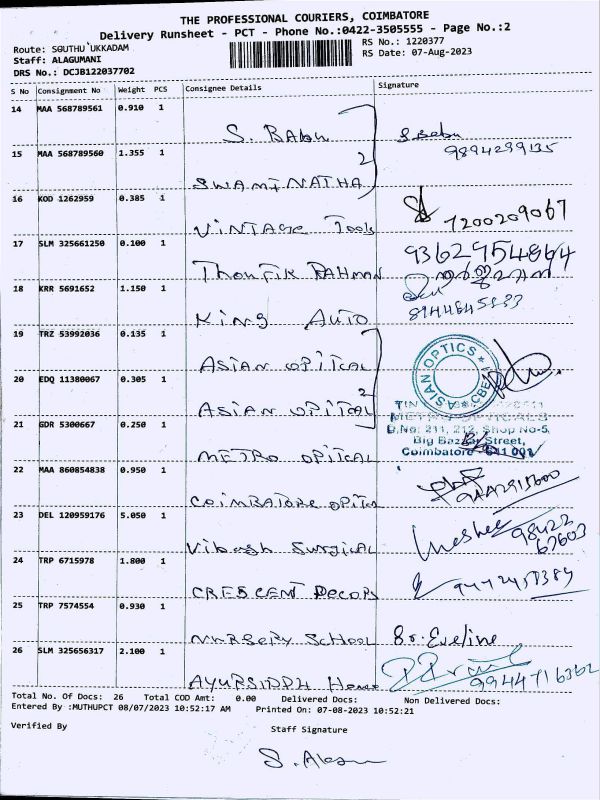 THE PROFESSIONAL COURIERS, COIMBATORE
Delivery Runsheet - PCT - Phone No.:0422-3505555 - Page No.:2
Route: SOUTHU UKKADAM
RS No.: 1220377
Staff: ALAGUMANI
RS Date: 07-Aug-2023
DRS No.: DCJB122037702
S No Consignment No Weight PCS Consignee Details Signature
14 MAA 568789561 0.910 1
S. BABU S Babu
15 MAA 568789560 1.355 1 2 9894299135
SWAMINATHA
16 KOD 1262959 0.385 1
VINTAGE Tools 7200209067
17 SLM 325661250 0.100 1 9362954864
THOUFIK RAHMAN
18 KRR 5691652 1.150 1
KING AUTO
19 TRZ 53992036 0.135 1
ASIAN OPITCAL ASIAN OPTICS CBE
20 EDQ 11380067 0.305 1 2
ASIAN OPITCAL TIN
METRO OPTICALS
21 GDR 5300667 0.250 1 D.No: 211, 212, Shop No-5,
Big Bazaar Street,
METRO OPITCAL Coimbatore - 641 001
22 MAA 860854838 0.950 1
COIMBATORE OPITC
23 DEL 120959176 5.050 1 98422
67603
Vibash SURGICAL
24 TRP 6715978 1.800 1
CRESCENT DECORS
25 TRP 7574554 0.930 1
NURSERY SCHOOL Sr. Eveline
26 SLM 325656317 2.100 1
AYURSIDDH Home 9944716362
Total No. Of Docs: 26 Total COD Amt: 0.00 Delivered Docs: Non Delivered Docs:
Entered By :MUTHUPCT 08/07/2023 10:52:17 AM Printed On: 07-08-2023 10:52:21
Verified By Staff Signature